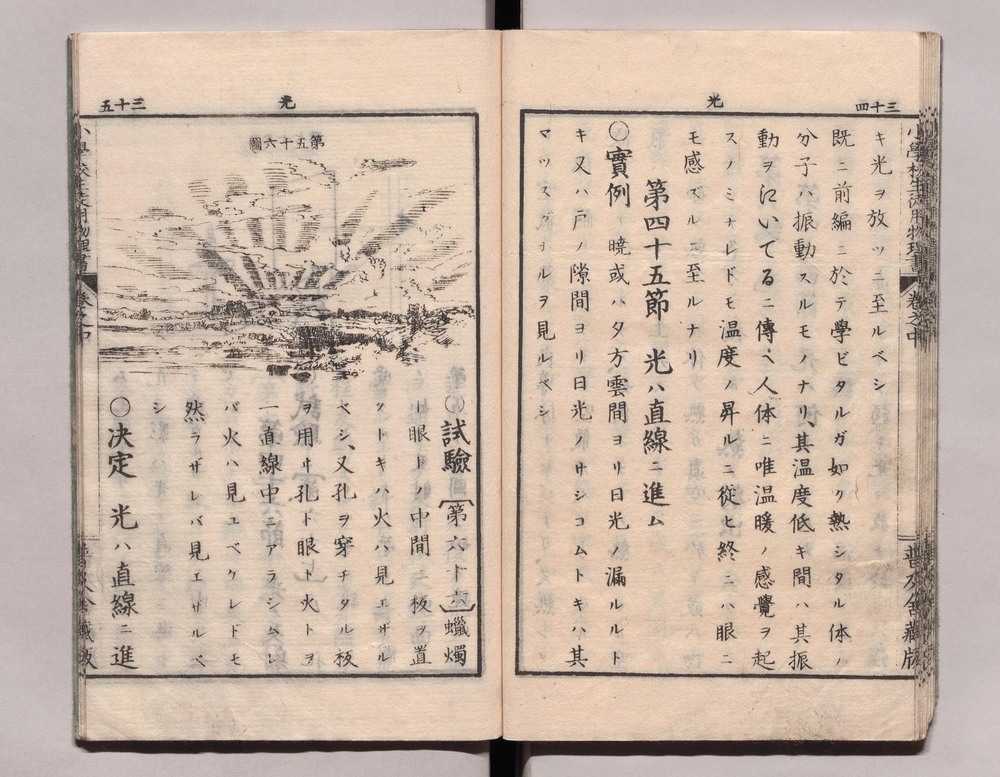 三十四
光
キ光ヲ放ツニ至ルベシ
既ニ前編ニ於テ學ビタルガ如ク熱シタル体ノ
分子ハ振動スルモノナリ其温度低キ間ハ其振
動ヲにいてるニ傳ヘ人体ニ唯温暖ノ感覺ヲ起
スノミナレドモ温度ノ昇ルニ從ヒ終ニハ眼ニ
モ感ズルニ至ルナリ
第四十五節 光ハ直線ニ進ム
○實例 曉或ハタ方雲間ヨリ日光ノ漏ルルト
キ又ハ戸ノ隙間ヨリ日光ノサシコムトキハ其
マツスグナルヲ見ルベシ
小學校生徒用物理書
卷之中
普及舍藏版
三十五
光
第五十六圖
○試驗【第六十六】蠟燭
ト眼トノ中間ニ板ヲ置
クトキハ火ハ見エザル
ベシ、又孔ヲ穿チタル板
ヲ用ヰ孔ト眼ト火トヲ
一直線中ニアラシムレ
バ火ハ見ユベケレドモ
然ラザレバ見エザルベ
シ
○决定 光ハ直線ニ進
小學校生徒用物理書
卷之中
普及舍藏版